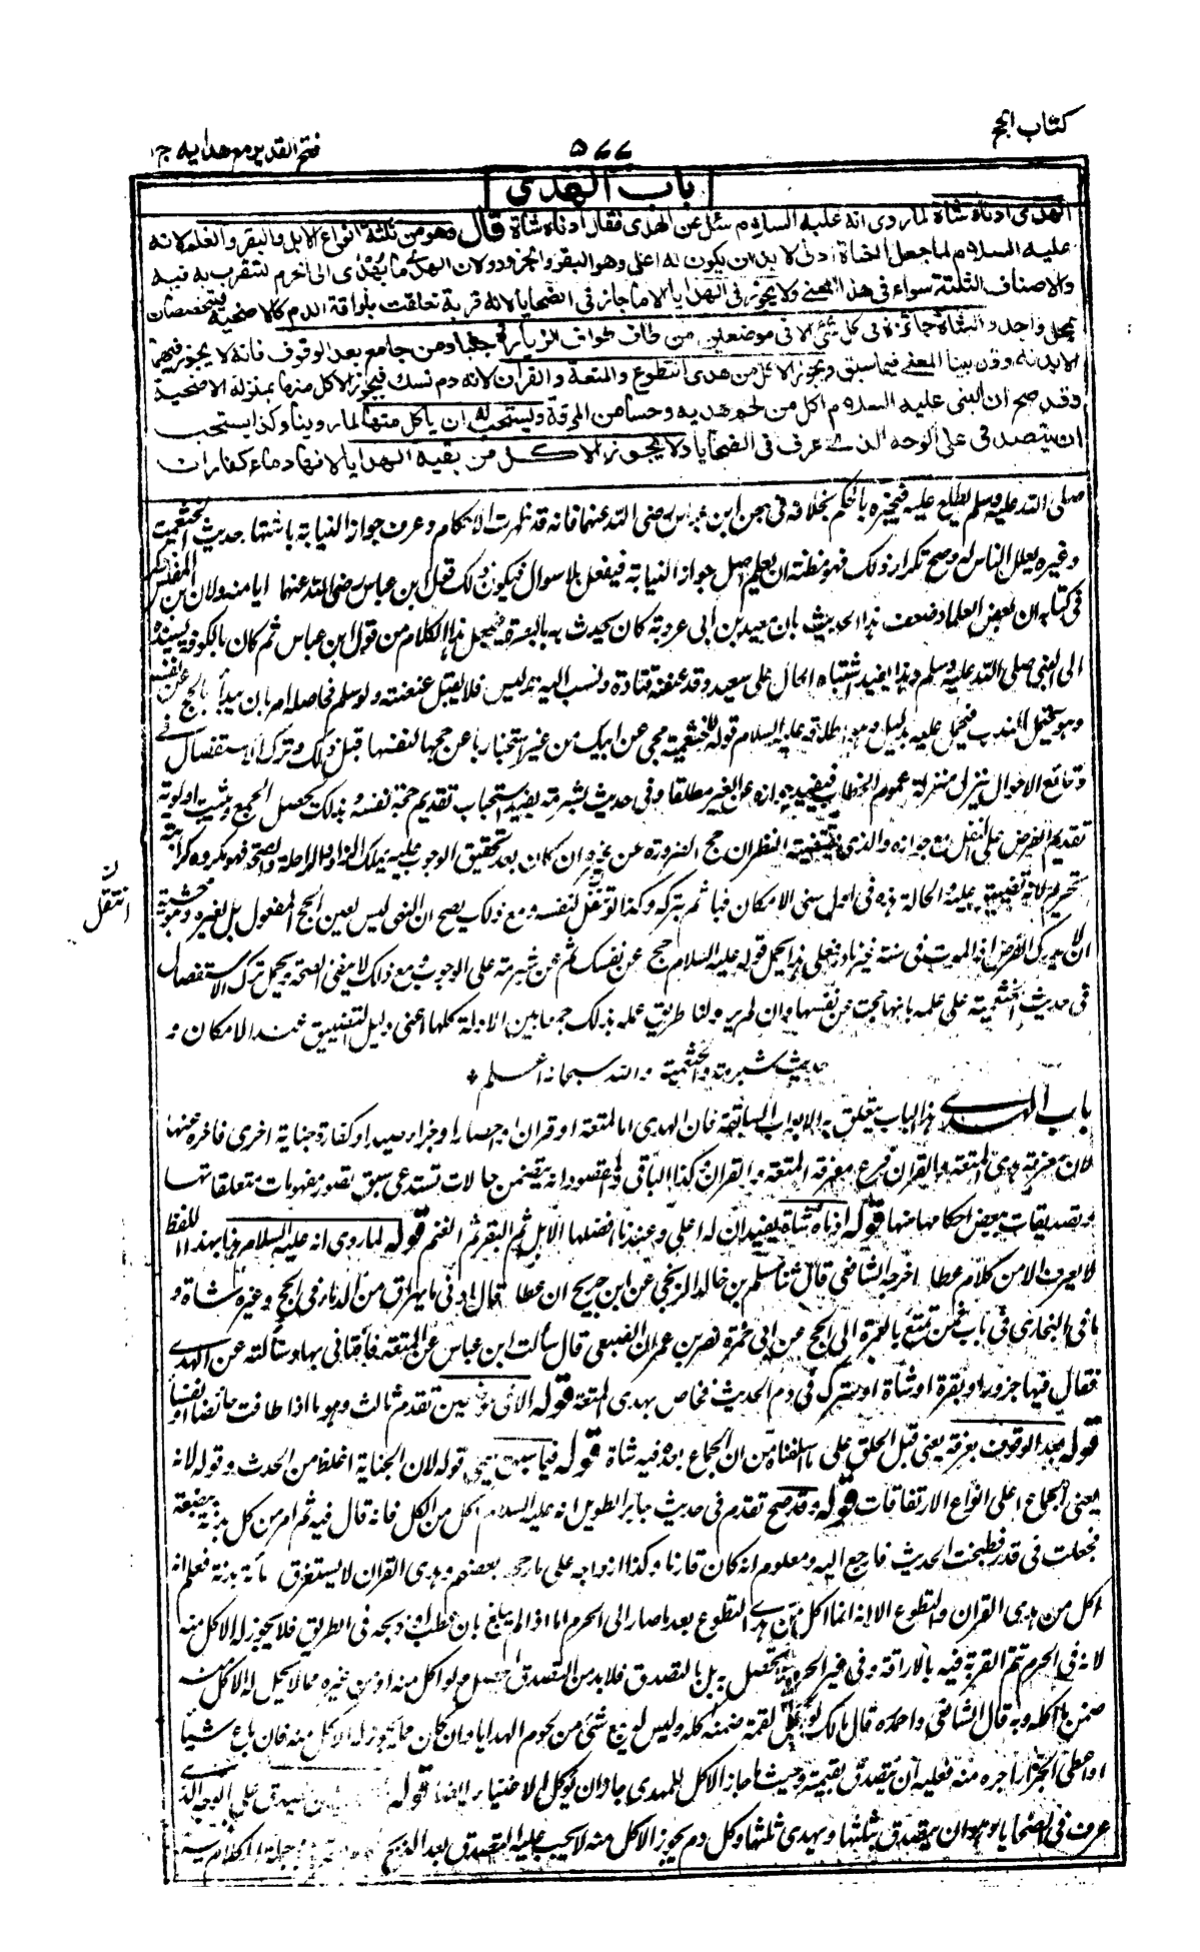 كتاب الحج
۵۷۷
فتح القدير مع هدايه ج۱
باب الهدى
الهدى ادناه شاة لما روى انه عليه السلام سئل عن الهدى فقال ادناه شاة قال وهو من ثلثة انواع الابل والبقر والغنم لانه
عليه السلام لما جعل الشاة ادنى لا بد ان يكون له اعلى وهو البقر والجزور ولان الهدى ما يهدى الى الحرم ليتقرب به فيه
والاصناف الثلثة سواء فى هذا المعنى ولا يجوز فى الهدايا الا ما جاز فى الضحايا لانه قربة تعلقت باراقة الدم كالاضحية فيتخصصان
بمحل واحد والشاة جائزة فى كل شئ الا فى موضعين من طاف طواف الزيارة جنبا ومن جامع بعد الوقوف فانه لا يجوز فيهما
الا بدنة وقد بينا المعنى فيما سبق ويجوز الاكل من هدى التطوع والمتعة والقران لانه دم نسك فيجوز الاكل منها بمنزلة الاضحية
وقد صح ان النبى عليه السلام اكل من لحم هديه وحسا من المرقة ويستحب له ان ياكل منها لما روينا وكذا يستحب
ان يتصدق على الوجه الذى عرف فى الضحايا ولا يجوز الاكل من بقية الهدايا لانها دماء كفارات
صلى الله عليه وسلم ليطلع عليه فيخبره بالحكم بخلافه فى زمن ابن عباس رضى الله عنهما فانه قد ظهرت الاحكام وعرف جواز النيابة باشتهار حديث الخثعمية
وغيره بعلل الناس له وصح تكرار ذلك فهو مظنة ان يعلم اصل جواز النيابة فيفعل بلا سوال فيكون ذلك قول ابن عباس رضى الله عنهما ايا منه ولان ابن المفلس ذكر
فى كتابه ان بعض العلماء ضعف هذا الحديث بان سعيد بن ابى عروبة كان يحدث به بالبصرة فيجعل هذا الكلام من قول ابن عباس ثم كان بالكوفة يسنده
الى النبى صلى الله عليه وسلم وهذا يفيد اشتباه الحال على سعيد وقد عنعنه قتادة ونسب اليه تدليس فلا يقبل عنعنته ولو سلم فحاصله امر بان يبدأ بالحج عن نفسه
وهو يحتمل الندب فيحمل عليه بدليل وهو اطلاقه عليه السلام قوله للخثعمية حجى عن ابيك من غير استخبارها عن حجها لنفسها قبل ذلك وترك الاستفصال فى
وقائع الاحوال ينزل منزلة عموم الخطاب فيفيد جوازه عن الغير مطلقا وفى حديث شبرمة يفيد استحباب تقديم حجة نفسه وبذلك يحصل الجمع ويثبت اولوية
تقديم الفرض على النفل مع جوازه والذى يقتضيه النظر ان حج الضرورة عن غيره ان كان بعد تحقيق الوجوب عليه بملك الزاد والراحلة والصحة فهو مكروه كراهة
تحريم لانه تضييق عليه والحالة هذه فى اول سنى الامكان فياثم بتركه وكذا لو تنفل لنفسه ومع ذلك يصح لان النهى ليس لعين الحج المفعول بل لغيره وهو خشية
ان لا يدرك الفرض اذ الموت فى سنة غير نادر فعلى هذا يحمل قوله عليه السلام حج عن نفسك ثم عن شبرمة على الوجوب ومع ذلك لا ينفى الصحة ويحمل ترك الاستفصال
فى حديث الخثعمية على علمه بانها حجت عن نفسها وان لم يرو لنا طريق علمه بذلك جمعا بين الادلة كلها اعنى دليل التضييق عند الامكان و
حديث شبرمة والخثعمية والله سبحانه اعلم
باب الهدى هذا الباب يتعلق به الابواب السابقة فان الهدى اما لمتعة او قران او احصار او جزاء صيد او كفارة جناية اخرى فاخره عنها
لان معرفة هدى المتعة والقران فرع معرفة المتعة والقران وكذا الباقى والمقصود انه يتضمن حالات تستدعى سبق تصور مفهومات متعلقاتها
وتصديقات بعض احكامها منها قوله ادناه شاة يفيد ان له اعلى وعندنا افضلها الابل ثم البقر ثم الغنم قوله لما روى انه عليه السلام هذا بهذا اللفظ
لا يعرف الا من كلام عطاء اخرجه الشافعى قال ثنا مسلم بن خالد الزنجى عن ابن جريج ان عطاء قال ادنى ما يهراق من الدماء فى الحج وغيره شاة و
ما فى البخارى فى باب فمن تمتع بالعمرة الى الحج عن ابى جمرة نصر بن عمران الضبعى قال سألت ابن عباس عن المتعة فأفتانى بها وسألته عن الهدى
فقال فيها جزور او بقرة او شاة او شرك فى دم الحديث فخاص بهدى المتعة قوله الا فى موضعين تقدم ثالث وهو ما اذا طافت حائضا او نفساء
قوله بعد الوقوف بعرفة يعنى قبل الحلق على ما اسلفناه من ان الجماع بعده فيه شاة قوله فيما سبق يعنى قوله لان الجناية اغلظ من الحدث وقوله لانه
يعنى الجماع اعلى انواع الارتفاقات قوله وقد صح تقدم فى حديث جابر الطويل انه عليه السلام اكل من الكل فانه قال فيه ثم امر من كل بدنة ببضعة
فجعلت فى قدر فطبخت الحديث فارجع اليه ومعلوم انه كان قارنا وكذا ازواجه على ما رجحه بعضهم وهدى القران لا يستغرق مائة بدنة فعلم انه
اكل من هدى القران والتطوع الا انه انما اكل من هدى التطوع بعد ما صار الى الحرم اما اذا لم يبلغ بان عطب وذبحه فى الطريق فلا يجوز له الاكل منه
لانه فى الحرم تتم القربة فيه بالاراقة وفى غير الحرم لا يحصل به بل بالتصدق فلا بد من التصدق ليحصل ولو اكل منه او من غيره مما لا يحل له الاكل منه
ضمن ما اكله وبه قال الشافعى واحمد وقال مالك لو اكل لقمة ضمنه كله وليس له بيع شئ من لحوم الهدايا وان كان مما يجوز له الاكل منه فان باع شيأ
او اعطى الجزار اجره منه فعليه ان يتصدق بقيمته وحيث ما جاز الاكل للمهدى جاز ان يوكل الاغنياء ايضا قوله يتصدق على الوجه الذى
عرف فى الضحايا وهو ان يتصدق بثلثها ويهدى ثلثها وكل دم يجوز الاكل منه لا يجب عليه التصدق بعد الذبح وجملة الكلام فيه
انتقل